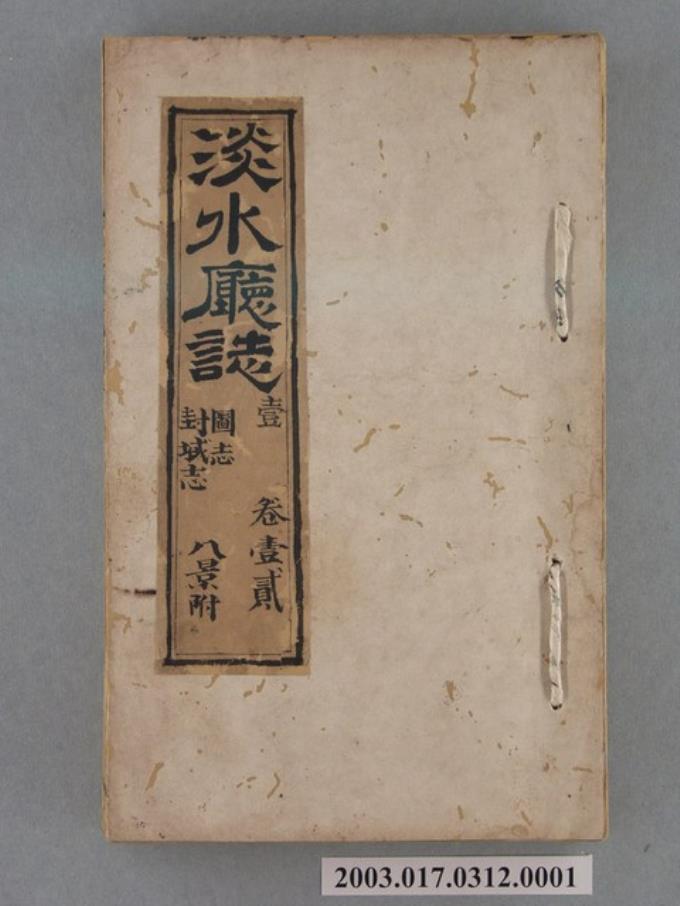 淡水廳誌
壹
卷壹貳
圖志
封域志
八景附
2003.017.0312.0001